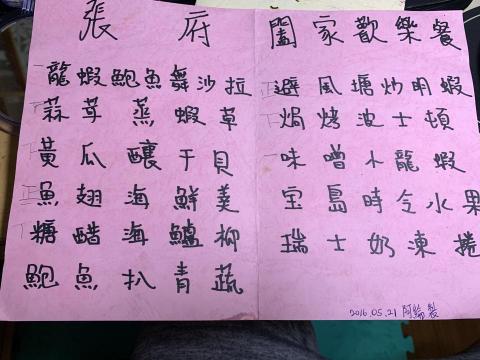 張府 闔家歡樂餐
龍蝦鮑魚舞沙拉
蒜茸蒸蝦草
黃瓜釀干貝
魚翅海鮮羹
糖醋海鱸柳
鮑魚扒青蔬
避風塘炒明蝦
焗烤波士頓
味噌小龍蝦
宝島時令水果
瑞士奶凍捲
2016.05.21 阿綸製